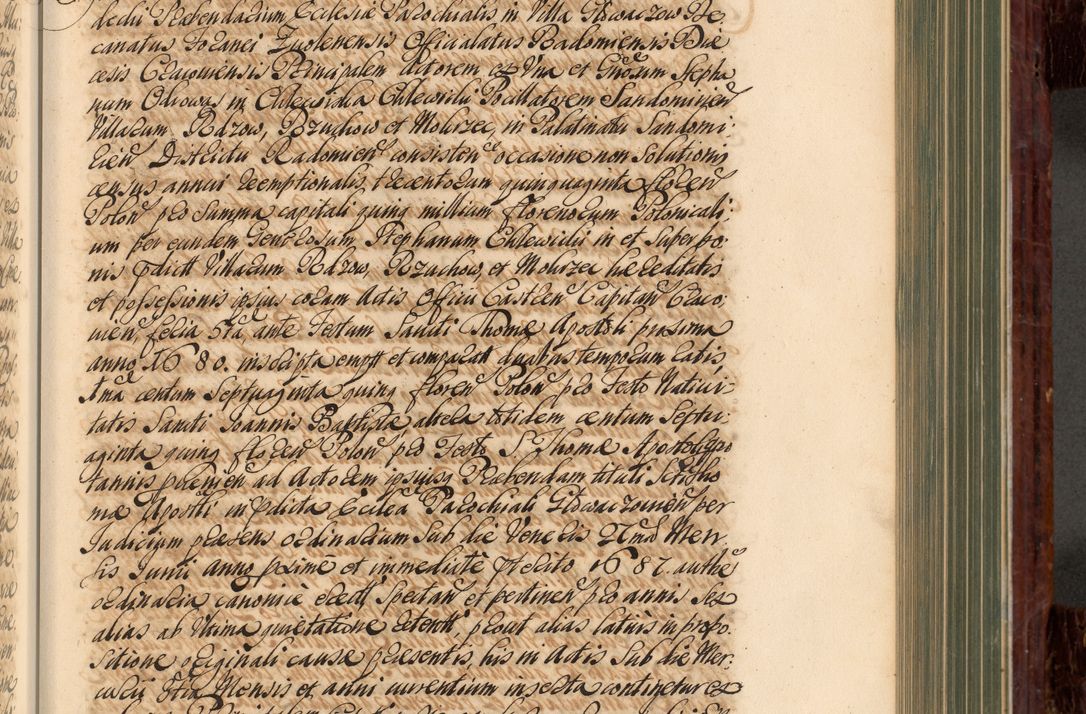 dedii Præbendarium Ecclesiæ Parochialis in Villa Głowaczow De
canatus Foranei Zwolenensis Officialatus Radomiensis Diæ
cesis Cracoviensis Principalem Actorem ex Vna et Gnosum Stepha
num Odrowąs in Chlewiska Chlewicki Pocillatorem Sandomirien
Villarum Rdzow, Rzuchow et Mokrzec, in Palatinatu Sandomi:
rien Districtu Radomien consisten occasione non Solutionis
census annui reemptionalis, trecentorum quinquaginta floren
Polon pro Summa capitali quinq millium florenorum Polonicali:
um per eundem Generosum Stephanum Chlewicki in et Super bo:
nis prdictt Villarum Rdzow, Rzuchow, et Mokrzec hæreditatis
et possessionis ipsius coram Actis Officii Castren Capitan Craco:
vien, feria 5ta, ante Festum Sancti Thomæ Apostoli proxima
anno 1680. inscripta emptt et comparatt duabus temporum ratis
1ma centum Septuaginta quinq floren Polon pro Festo Nativi:
tatis Sancti Joannis Baptistæ altera totidem centum Septu:
aginta quinq floren Polon pro Festo S. Thomæ Apostoli quo
tannis provenien ad Actorem ipsiusq Præbendam tituli Scti Tho
mæ Apostoli in prdicta Ecclea Parochiali Głowaczowien per
Judicium præsens ordinarium Sub die Veneris 27ma Men
sis Junii anno proxime et immediate prterito 1687. authe
ordinaria canonice erectt Spectan et pertinen pro annis Sex
alias ab Vltima quietatione retentt, prout alias latius in propo:
sitione originali causæ præsentis, his in Actis Sub die Mer:
curii 8va Mensis et anni currentium inserta continetur ex